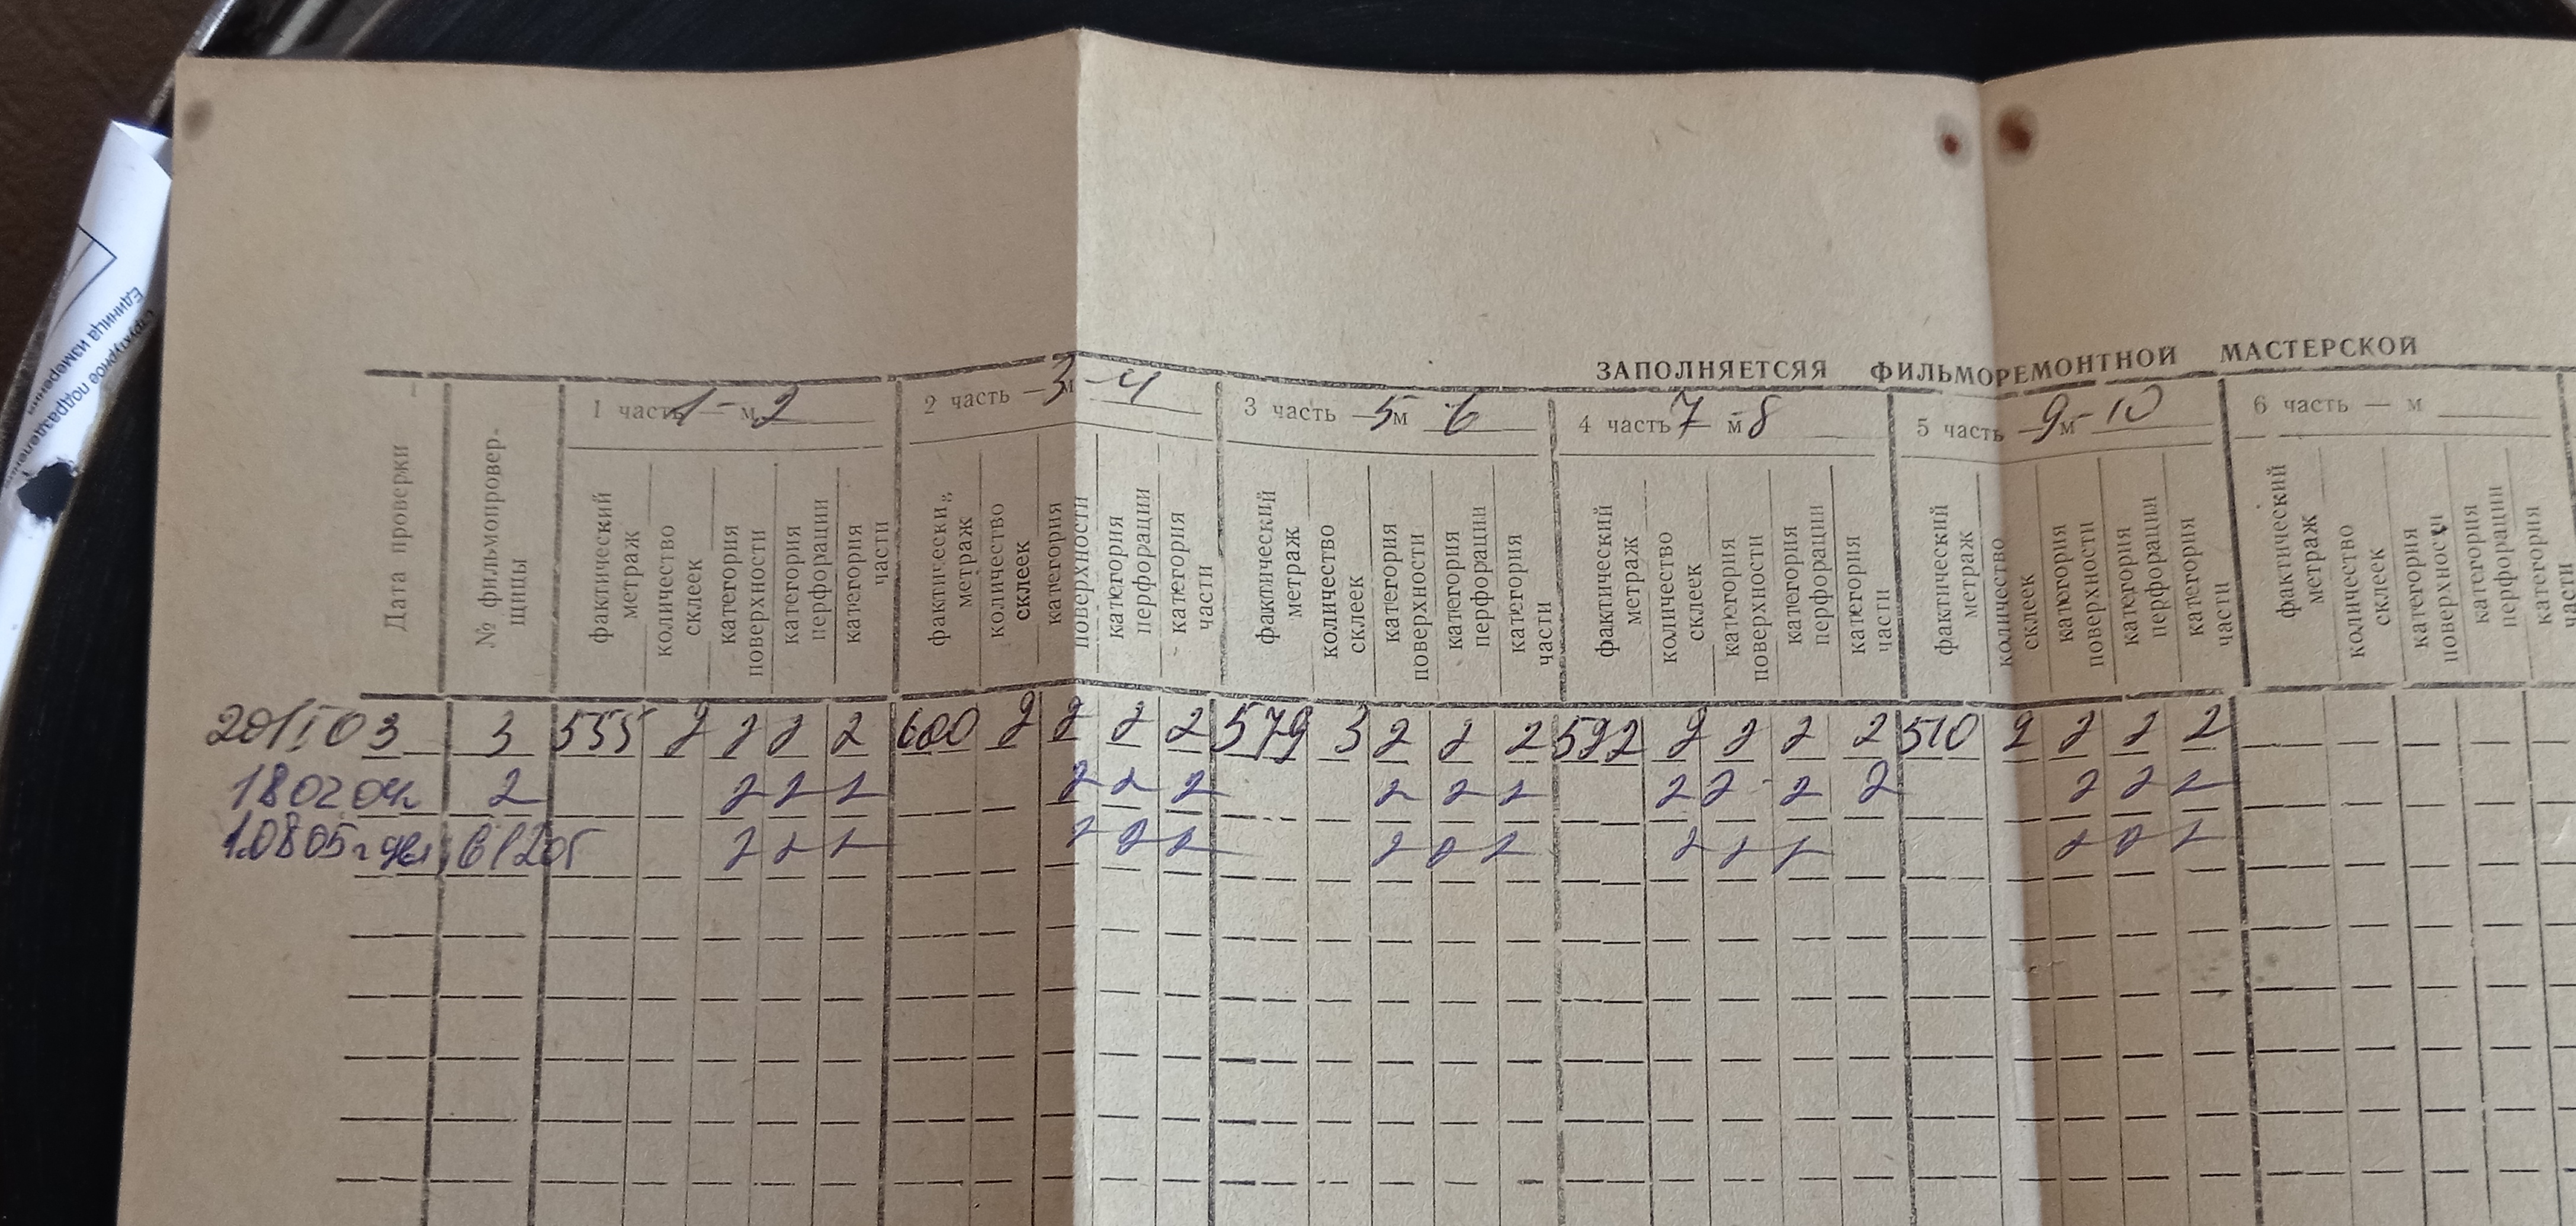 ЗАПОЛНЯЕТСЯЯ ФИЛЬМОРЕМОНТНОЙ МАСТЕРСКОЙ
Дата проверки
№ фильмопровер-
щицы
1 часть 1 — м 2
2 часть — 3 м - 4
3 часть — 5 м 6
4 часть 7 — м 8
5 часть — 9 м - 10
6 часть — м
фактический
метраж
количество
склеек
категория
поверхности
категория
перфорации
категория
части
фактический
метраж
количество
склеек
категория
поверхности
категория
перфорации
категория
части
фактический
метраж
количество
склеек
категория
поверхности
категория
перфорации
категория
части
фактический
метраж
количество
склеек
категория
поверхности
категория
перфорации
категория
части
фактический
метраж
количество
склеек
категория
поверхности
категория
перфорации
категория
части
фактический
метраж
количество
склеек
категория
поверхности
категория
перфорации
категория
части
20/I 03 3 555 2 2 2 2 600 2 2 2 2 579 3 2 2 2 592 2 2 2 2 510 2 2 2 2
180204г 2 2 2 2 2 2 2 2 2 2 2 2 2 2 2 2 2
10805г 2 2 2 2 2 2 2 2 2 2 2 2 2 2 2
Единица измерения
структурное подразделение